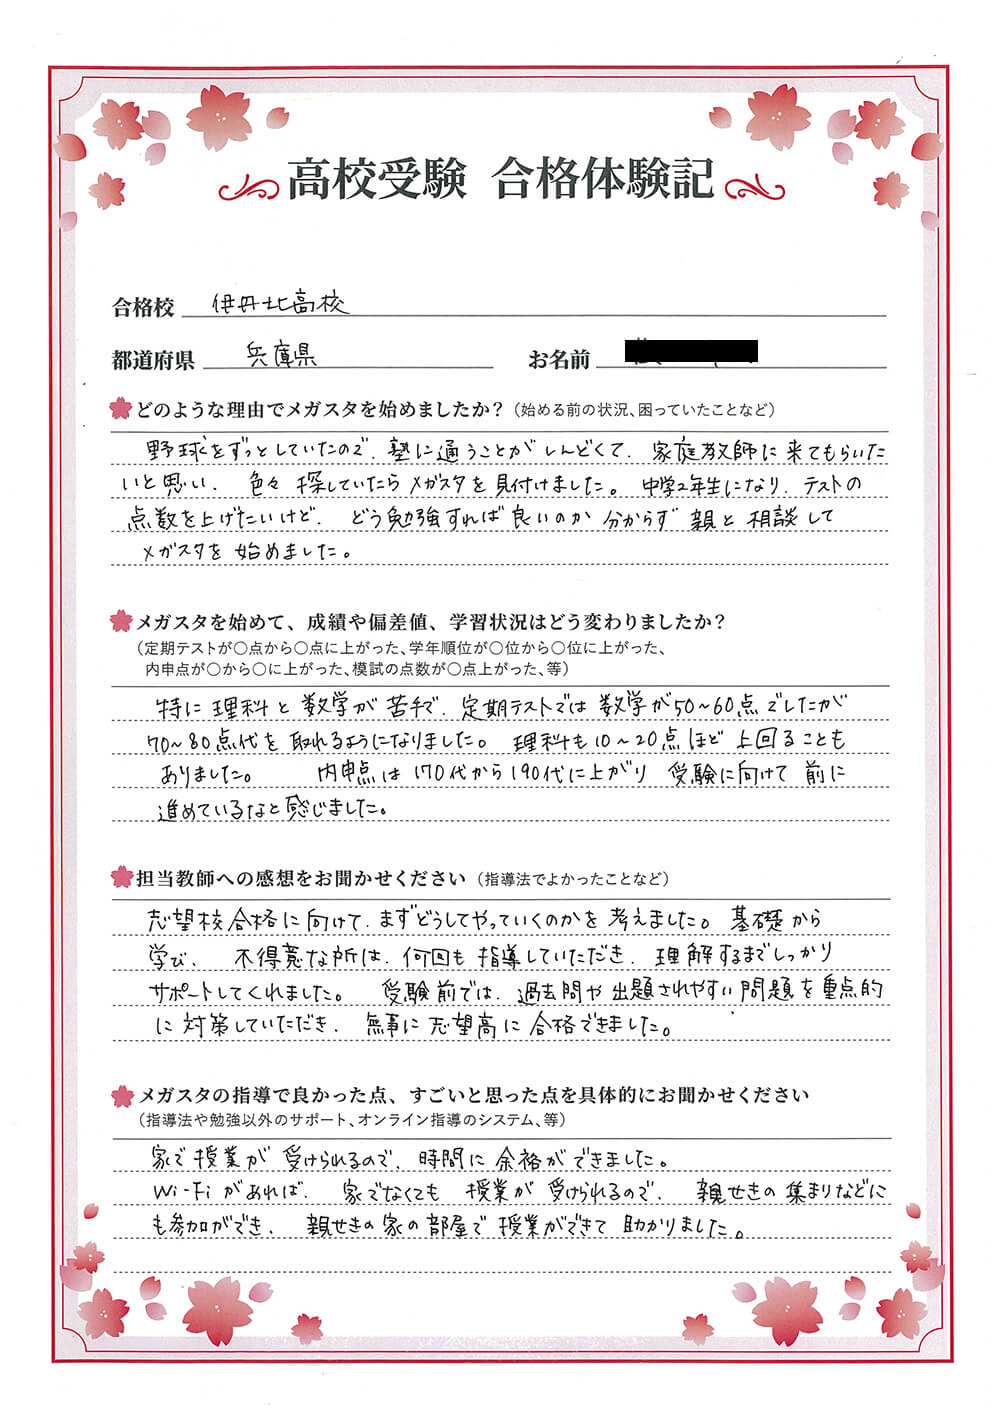 高校受験 合格体験記
合格校 伊丹北高校
都道府県 兵庫県 お名前
どのような理由でメガスタを始めましたか？（始める前の状況、困っていたことなど）
野球をずっとしていたので、塾に通うことがしんどくて、家庭教師に来てもらいた
いと思い、色々探していたらメガスタを見付けました。中学2年生になり、テストの
点数を上げたいけど、どう勉強すれば良いのか分からず親と相談して
メガスタを始めました。
メガスタを始めて、成績や偏差値、学習状況はどう変わりましたか？
（定期テストが〇点から〇点に上がった、学年順位が〇位から〇位に上がった、
内申点が〇から〇に上がった、模試の点数が〇点上がった、等）
特に理科と数学が苦手で、定期テストでは数学が50~60点でしたが
70~80点代を取れるようになりました。理科も10~20点ほど上回ることも
ありました。内申点は170代から190代に上がり受験に向けて前に
進めているなと感じました。
担当教師への感想をお聞かせください（指導法でよかったことなど）
志望校合格に向けて、まずどうしてやっていくのかを考えました。基礎から
学び、不得意な所は、何回も指導していただき、理解するまでしっかり
サポートしてくれました。受験前では、過去問や出題されやすい問題を重点的
に対策していただき、無事に志望高に合格できました。
メガスタの指導で良かった点、すごいと思った点を具体的にお聞かせください
（指導法や勉強以外のサポート、オンライン指導のシステム、等）
家で授業が受けられるので、時間に余裕ができました。
Wi-Fiがあれば、家でなくても授業が受けられるので、親せきの集まりなどに
も参加ができ、親せきの家の部屋で授業ができて助かりました。